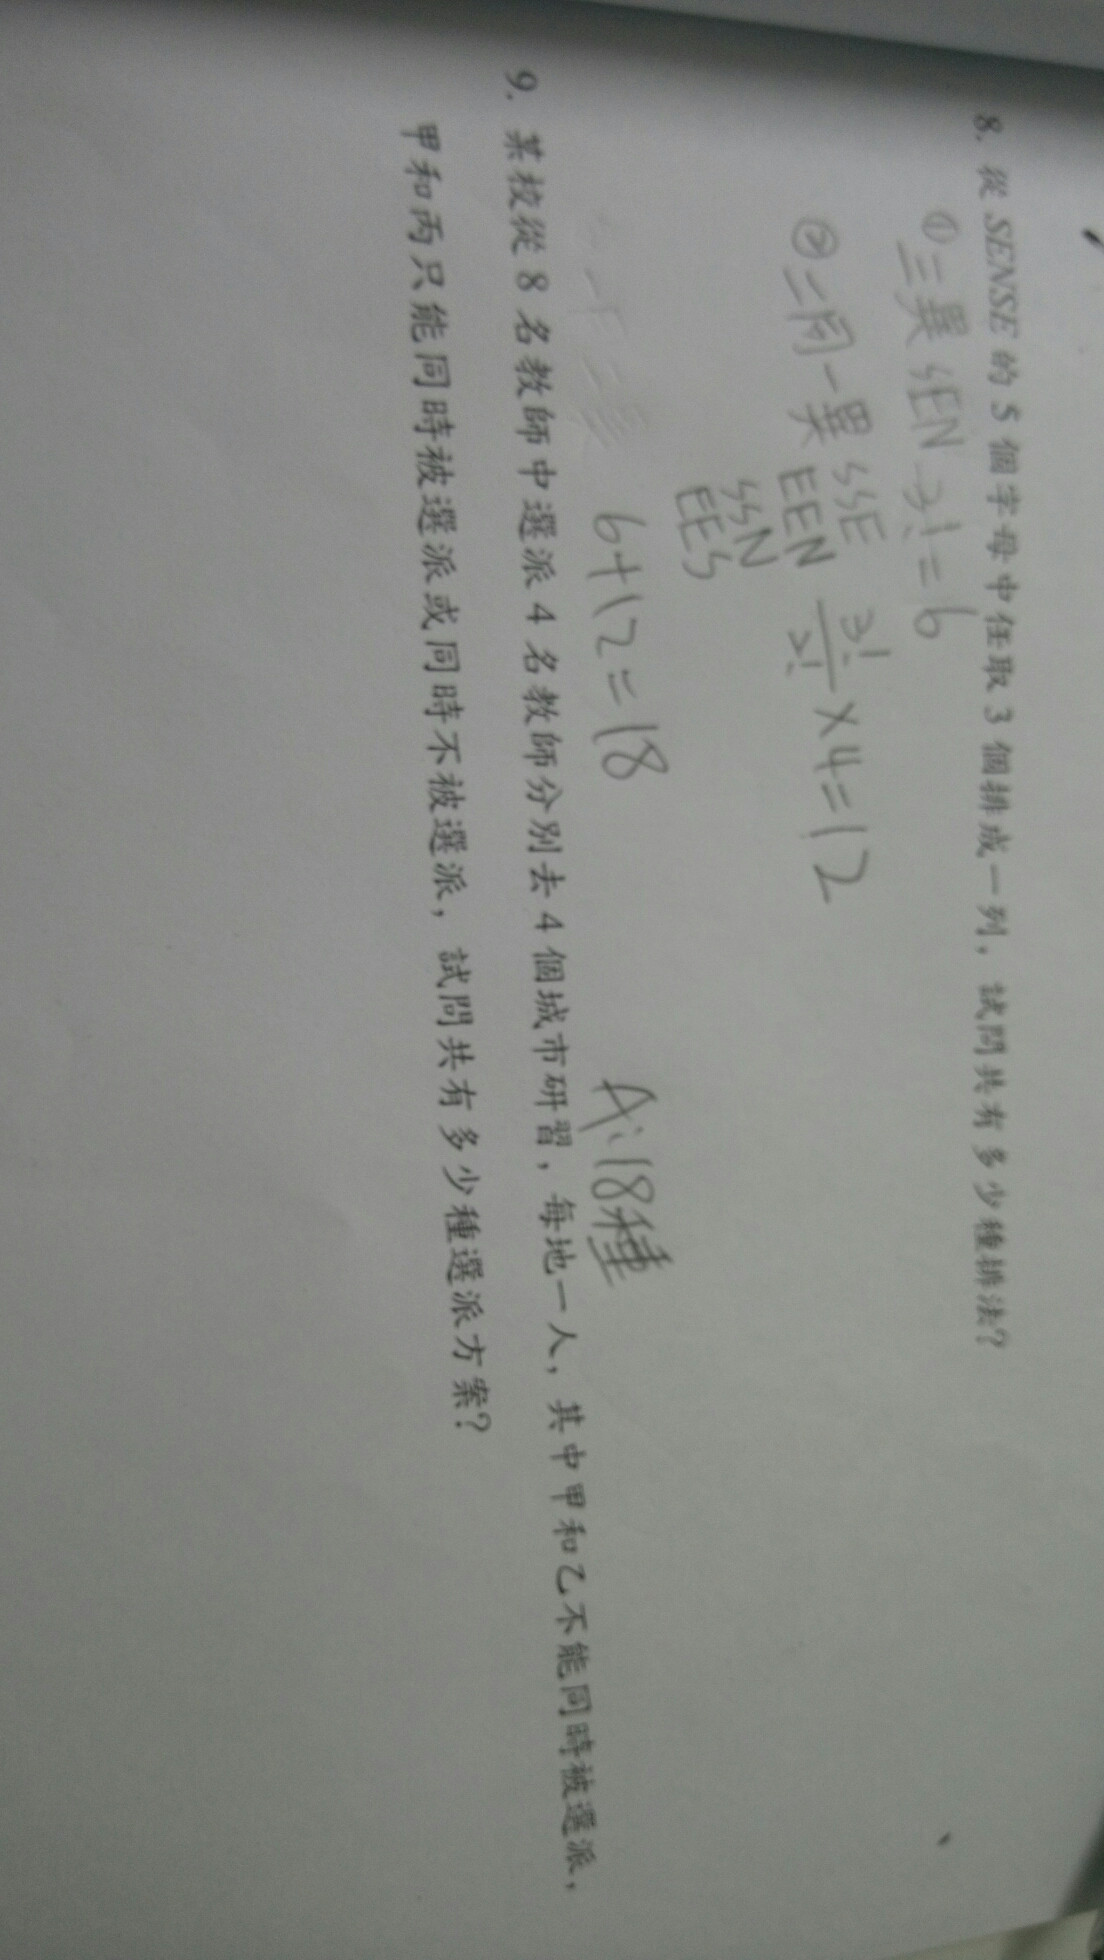 8. 從 SENSE 的 5 個字母中任取 3 個排成一列，試問共有多少種排法？
① 三異 SEN 3! = 6
② 二同一異 SSE
EEN 3!/2! × 4 = 12
SSN
EES
6+12=18 A:18種
9. 某校從 8 名教師中選派 4 名教師分別去 4 個城市研習，每地一人，其中甲和乙不能同時被選派，
甲和丙只能同時被選派或同時不被選派，試問共有多少種選派方案？